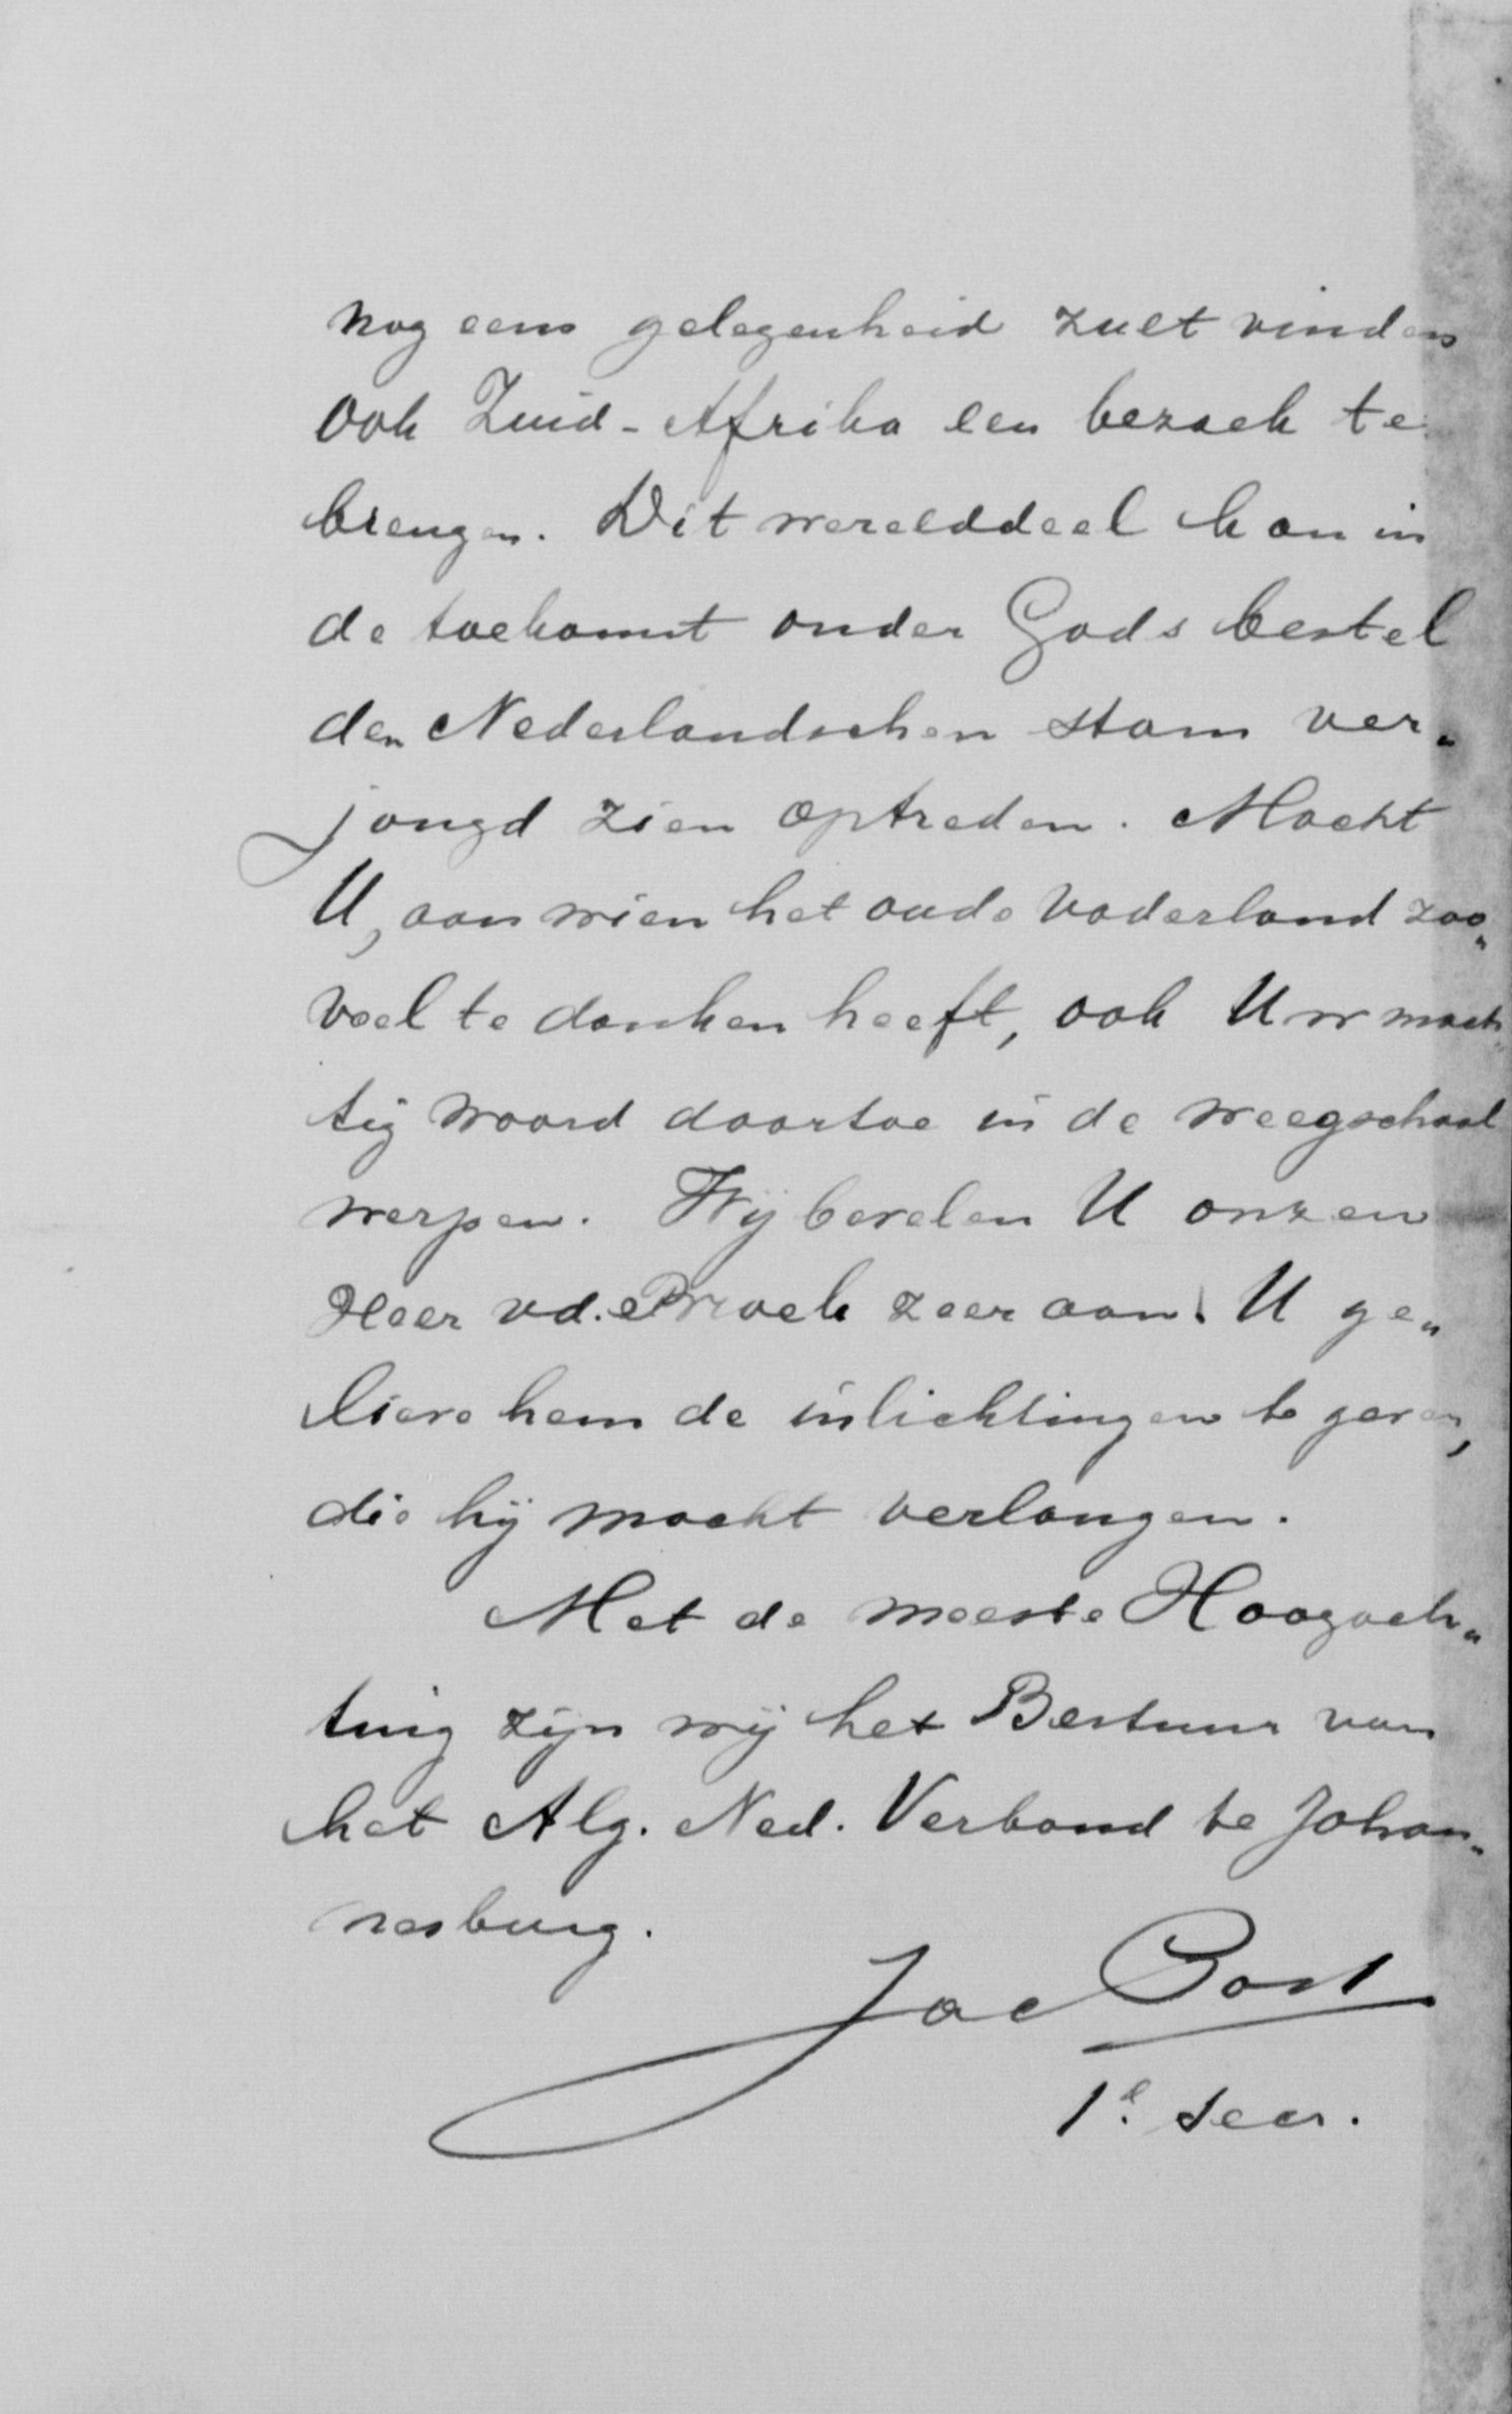 nog eens gelegenheid zult vinden
ook Zuid-Afrika een bezoek te
brengen. Dit werelddeel kan in
de toekomst onder Gods bestel
den Nederlandschen stam ver„
jongd zien optreden. Mocht
U, aan wien het oude vaderland zoo„
veel te danken heeft, ook Uw mach„
tig woord daartoe in de weegschaal
werpen. Wij bevelen U onzen
Heer vd. Broek zeer aan. U ge„
lieve hem de inlichtingen te geven,
die hij mocht verlangen.
Met de meeste Hoogach„
ting zijn wij het Bestuur van
het Alg. Ned. Verbond te Johan„
nesburg.
Jac Post
1e. Secr.